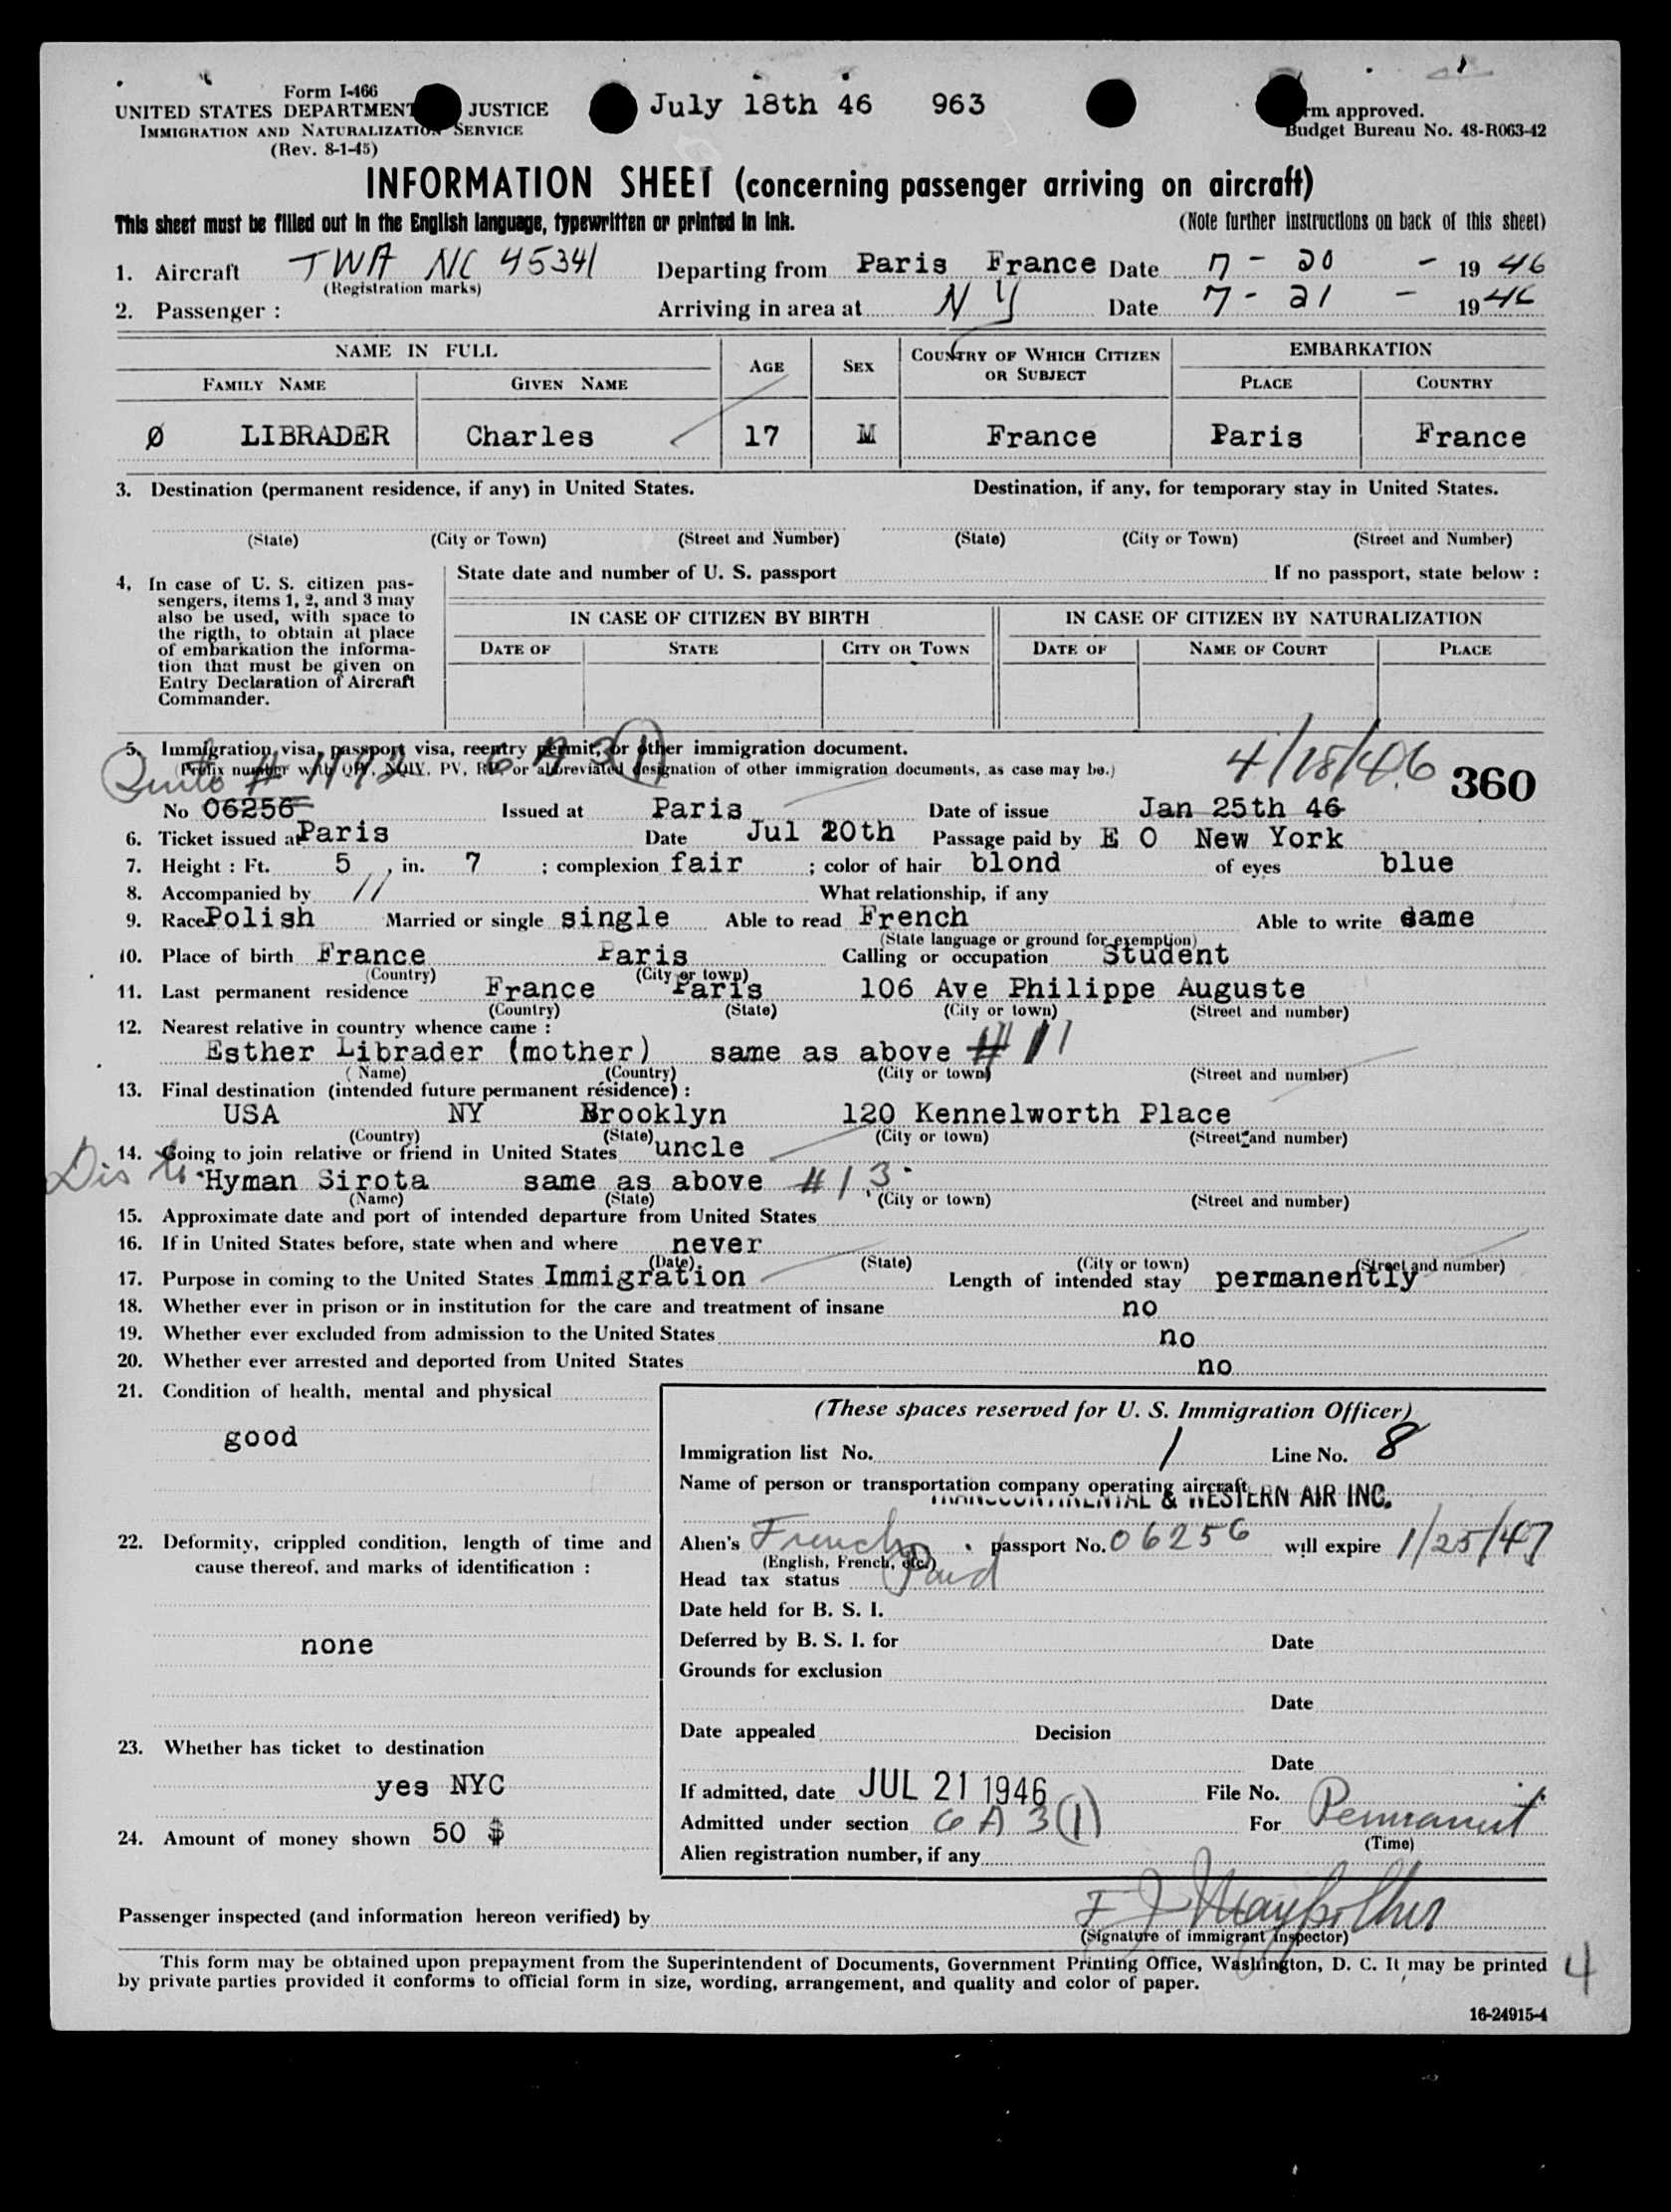 Form I-466
UNITED STATES DEPARTMENT JUSTICE
July 18th 46 963
rm approved.
IMMIGRATION AND NATURALIZATION SERVICE
Budget Bureau No. 43-R063-42
(Rev. 8-1-45)
INFORMATION SHEET (concerning passenger arriving on aircraft)
This sheet must be filled out in the English language, typewritten or printed in ink. (Note further instructions on back of this sheet)
1. Aircraft TWA NC 45341 Departing from Paris France Date 7 - 20 - 19 46
(Registration marks)
2. Passenger : Arriving in area at N Y Date 7 - 21 - 19 46
NAME IN FULL AGE SEX COUNTRY OF WHICH CITIZEN OR SUBJECT EMBARKATION
FAMILY NAME GIVEN NAME PLACE COUNTRY
Ø LIBRADER Charles 17 M France Paris France
3. Destination (permanent residence, if any) in United States. Destination, if any, for temporary stay in United States.
(State) (City or Town) (Street and Number) (State) (City or Town) (Street and Number)
4. In case of U. S. citizen pas-
sengers, items 1, 2, and 3 may
also be used, with space to
the rigth, to obtain at place
of embarkation the informa-
tion that must be given on
Entry Declaration of Aircraft
Commander.
State date and number of U. S. passport If no passport, state below :
IN CASE OF CITIZEN BY BIRTH IN CASE OF CITIZEN BY NATURALIZATION
DATE OF STATE CITY OR TOWN DATE OF NAME OF COURT PLACE
5. Immigration visa, passport visa, reentry permit, or other immigration document.
(Prefix number with QIV, NQIV, PV, RP, or abbreviated designation of other immigration documents, as case may be.)
6 A 3 (1) 4/18/46 360
No 06256 Issued at Paris Date of issue Jan 25th 46
6. Ticket issued at Paris Date Jul 20th Passage paid by E O New York
7. Height : Ft. 5 , in. 7 ; complexion fair ; color of hair blond of eyes blue
8. Accompanied by // What relationship, if any
9. Race Polish Married or single single Able to read French Able to write same
(State language or ground for exemption)
10. Place of birth France Paris Calling or occupation Student
(Country) (City or town)
11. Last permanent residence France Paris 106 Ave Philippe Auguste
(Country) (State) (City or town) (Street and number)
12. Nearest relative in country whence came :
Esther Librader (mother) same as above # 11
(Name) (Country) (City or town) (Street and number)
13. Final destination (intended future permanent résidence) :
USA NY Brooklyn 120 Kennelworth Place
(Country) (State) (City or town) (Street and number)
14. Going to join relative or friend in United States uncle
Hyman Sirota same as above # 13
(Name) (State) (City or town) (Street and number)
15. Approximate date and port of intended departure from United States
16. If in United States before, state when and where never
(Date) (State) (City or town) (Street and number)
17. Purpose in coming to the United States Immigration Length of intended stay permanently
18. Whether ever in prison or in institution for the care and treatment of insane no
19. Whether ever excluded from admission to the United States no
20. Whether ever arrested and deported from United States no
21. Condition of health, mental and physical
good
22. Deformity, crippled condition, length of time and
cause thereof, and marks of identification :
none
23. Whether has ticket to destination
yes NYC
24. Amount of money shown 50 $
(These spaces reserved for U. S. Immigration Officer)
Immigration list No. 1 Line No. 8
Name of person or transportation company operating aircraft
TRANSCONTINENTAL & WESTERN AIR INC.
Alien's French passport No. 06256 will expire 1/25/47
(English, French, etc.)
Head tax status Paid
Date held for B. S. I.
Deferred by B. S. I. for Date
Grounds for exclusion
Date
Date appealed Decision
Date
If admitted, date JUL 21 1946 File No.
Admitted under section 6 A 3 (1) For Permanent
(Time)
Alien registration number, if any
Passenger inspected (and information hereon verified) by
(Signature of immigrant inspector)
This form may be obtained upon prepayment from the Superintendent of Documents, Government Printing Office, Washington, D. C. It may be printed
by private parties provided it conforms to official form in size, wording, arrangement, and quality and color of paper.
4
16-24915-4